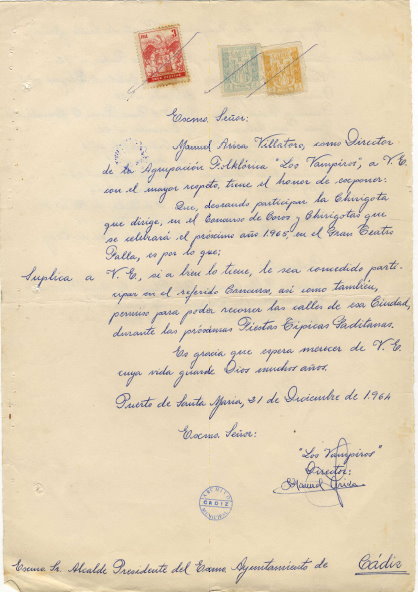 Excmo. Señor:
Manuel Arica Villatoro, como Director
de la Agrupación Folklórica "Los Vampiros", a V.E.
con el mayor respeto, tiene el honor de exponer:
Que, deseando participar la Chirigota
que dirige, en el Concurso de Coros y Chirigotas que
se celebrará el próximo año 1965, en el Gran Teatro
Falla, es por lo que;
Suplica a V.E, si a bien lo tiene, le sea concedido parti-
cipar en el referido Concurso, así como también,
permiso para poder recorrer las calles de esa Ciudad,
durante las próximas Fiestas Típicas Gaditanas.
Es gracia que espera merecer de V.E.
cuya vida guarde Dios muchos años.
Puerto de Santa María, 21 de Diciembre de 1.964
Excmo. Señor:
"Los Vampiros"
Director:
Manuel Arica
CADIZ
Excmo. Sr. Alcalde Presidente del Excmo. Ayuntamiento de Cádiz